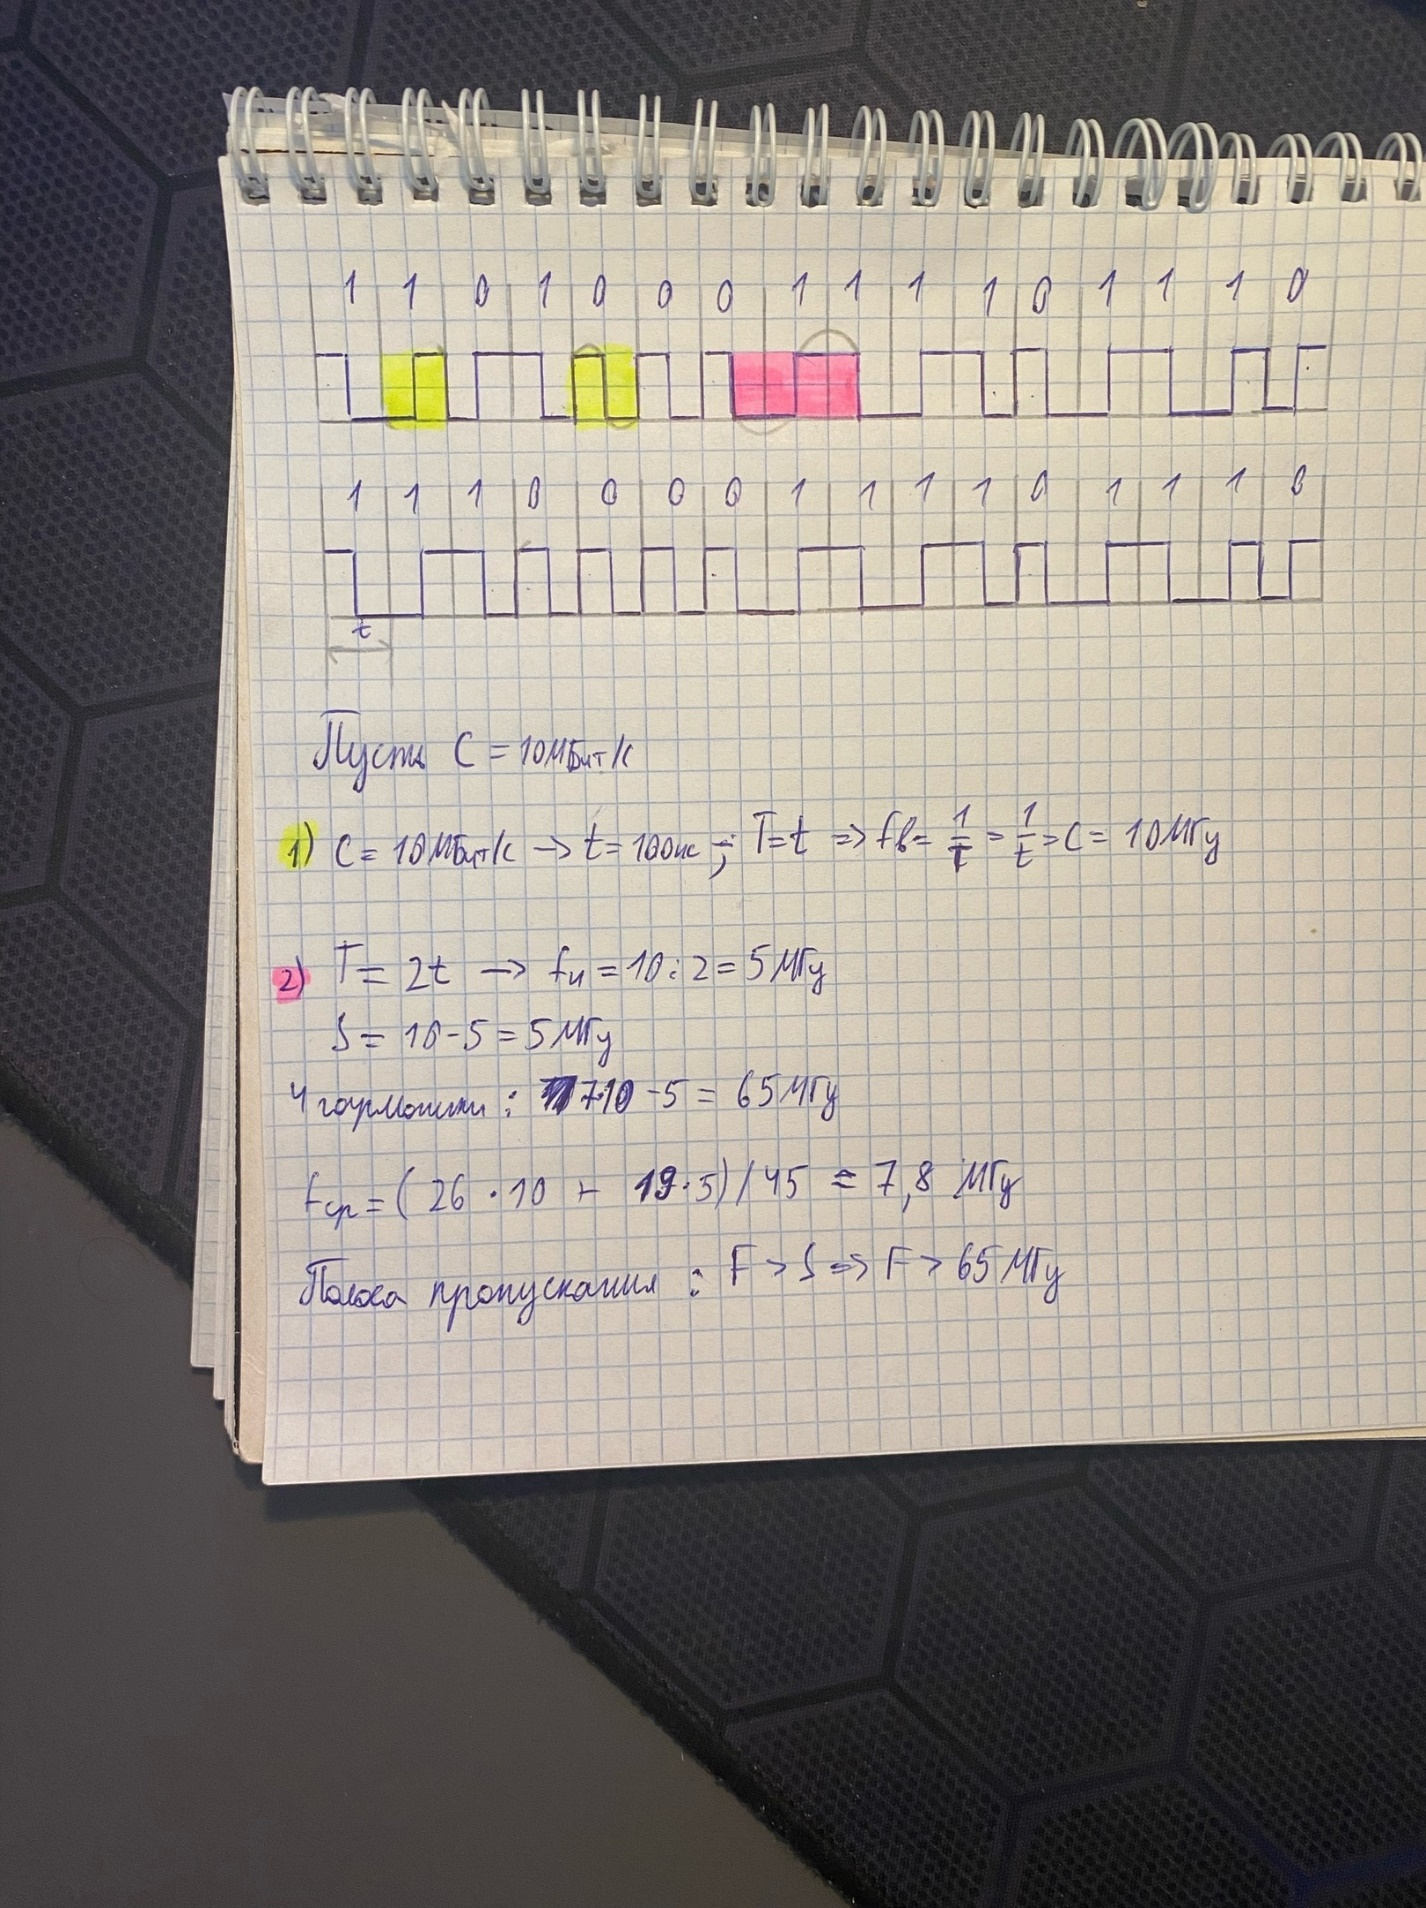 1 1 0 1 0 0 0 1 1 1 1 0 1 1 1 0
1 1 1 0 0 0 0 1 1 1 1 0 1 1 1 0
t
Пусть C = 10МБит/с
1) C = 10МБит/с → t = 100нс ; T=t => fв = 1/T = 1/t = C = 10МГц
2) T = 2t → fн = 10:2 = 5МГц
S = 10-5 = 5МГц
4 гармоники: 7·10 - 5 = 65МГц
fср = (26·10 + 19·5)/45 = 7,8 МГц
Полоса пропускания : F > S => F > 65МГц